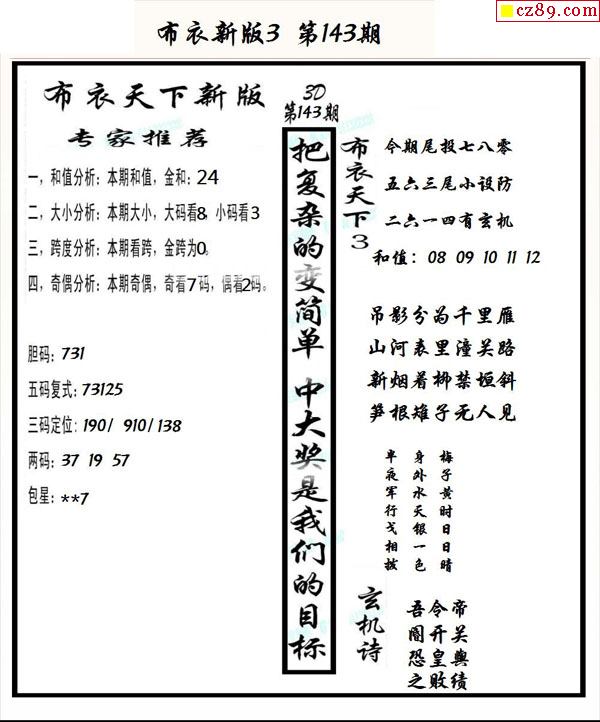 cz89.com
布衣新版3 第143期
布衣天下新版
专家推荐
一，和值分析：本期和值，金和：24
二，大小分析：本期大小，大码看8，小码看3
三，跨度分析：本期看跨，金跨为0。
四，奇偶分析：本期奇偶，奇看7码，偶看2码。
胆码：731
五码复式：73125
三码定位：190/ 910/138
两码：37 19 57
包星：**7
3D
第143期
把复杂的变简单 中大奖是我们的目标
布衣天下3
今期尾投七八零
五六三尾小设防
二六一四有玄机
和值：08 09 10 11 12
吊影分为千里雁
山河表里潼关路
新烟着柳禁垣斜
笋根雉子无人见
梅子黄时日日晴
身外水天银一色
半夜军行戈相拨
玄机诗
帝关舆绩
令开皇败
吾阁恐之